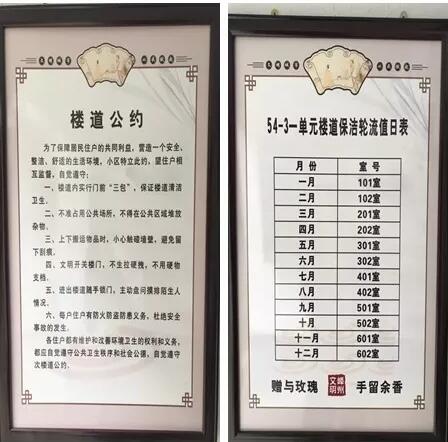 楼道公约
为了保障居民住户的共同利益，营造一个安全、
整洁、舒适的生活环境，小区特立此约，望住户相
互监督，自觉遵守：
一、楼道内实行门前“三包”，保证楼道清洁
卫生。
二、不准占用公共场所，不得在公共区域堆放
杂物。
三、上下搬运物品时，小心触碰墙壁，避免留
下刮痕。
四、文明开关楼门，不生拉硬拽，不用硬物
支档。
五、进出楼道随手锁门，主动盘问摸排陌生人
情况。
六、每户住户有防火防盗防患义务，杜绝安全
事故的发生。
各住户都有维护和改善环境卫生的权利和义务，
都应自觉遵守公共卫生秩序和社会公德，自觉遵守
次楼道公约。
54-3一单元楼道保洁轮流值日表
月份 室号
一月 101室
二月 102室
三月 201室
四月 202室
五月 301室
六月 302室
七月 401室
八月 402室
九月 501室
十月 502室
十一月 601室
十二月 602室
赠与玫瑰 手留余香